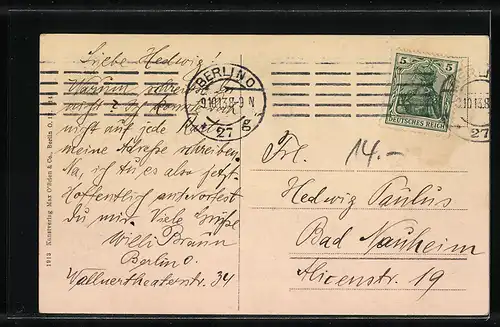 Liebe Hedwig!
Warum schreibst du
nicht? Ich konnte doch
nicht auf jede Karte
meine Adresse schreiben.
Na, ich tu es aber jetzt.
Hoffentlich antwortest
du mir. Viele Grüße
Willi Braun
Berlin O.
Wallnertheaterstr. 34
1913 Kunstverlag Max O'Brien & Co., Berlin O.
BERLIN O
9.10.13.8-9 N
27
g
5 5
DEUTSCHES REICH
27
Frl.
14.-
Hedwig Paulus
Bad Nauheim
Alicenstr. 19